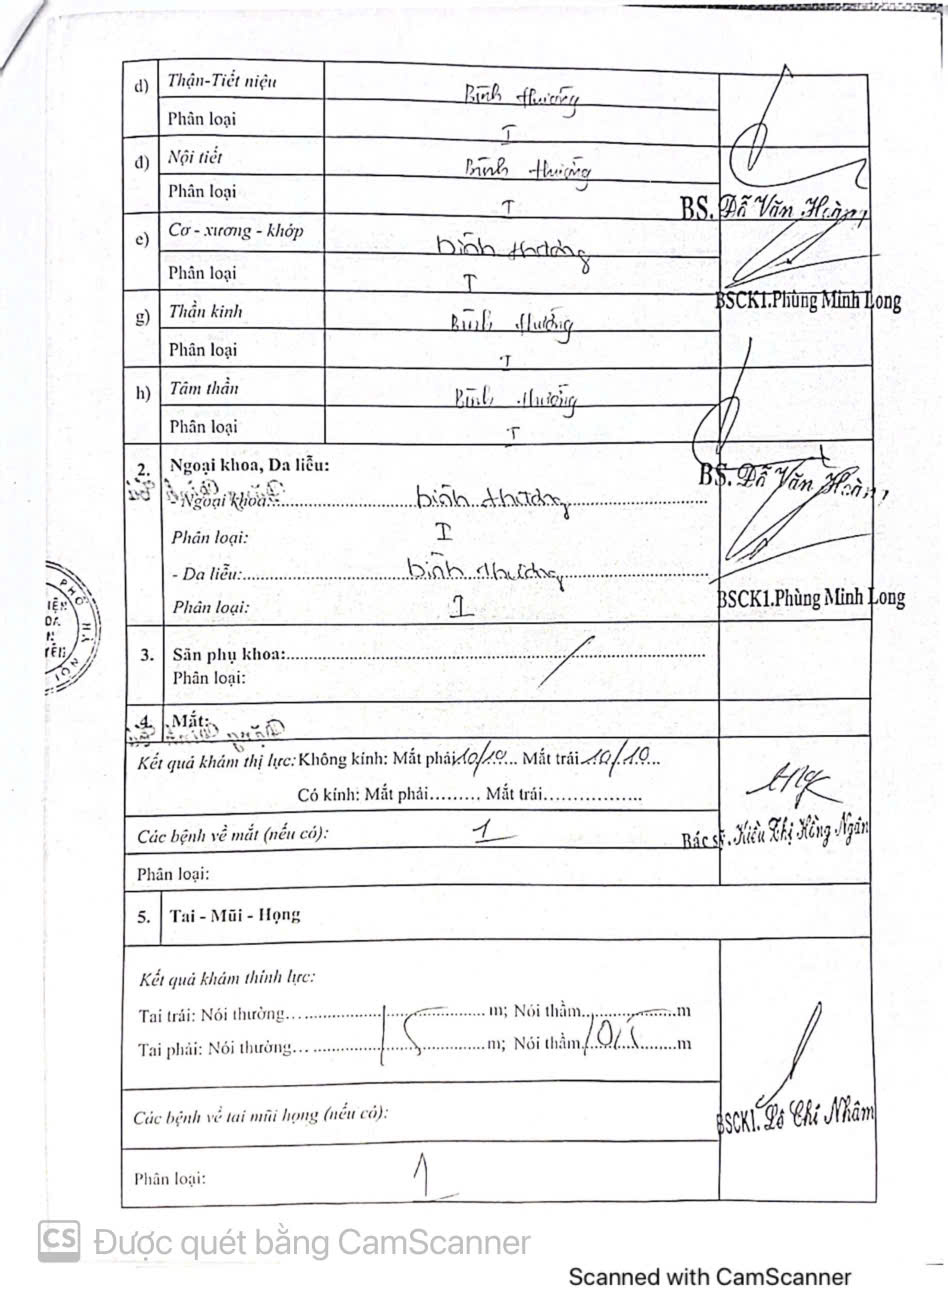 d) Thận-Tiết niệu Bình thường
Phân loại I
đ) Nội tiết Bình thường
Phân loại I
BS. Đỗ Văn Hoàn
e) Cơ - xương - khớp bình thường
Phân loại I
BSCK1.Phùng Minh Long
g) Thần kinh Bình thường
Phân loại I
h) Tâm thần Bình thường
Phân loại I
2. Ngoại khoa, Da liễu:
BS. Đỗ Văn Hoàn
- Ngoại khoa:.......... bình thường
Phân loại: I
- Da liễu:.......... bình thường
Phân loại: I
BSCK1.Phùng Minh Long
3. Sản phụ khoa:..........
Phân loại:
4. Mắt:
Kết quả khám thị lực: Không kính: Mắt phải 10/10... Mắt trái 10/10...
Có kính: Mắt phải......... Mắt trái..................
Các bệnh về mắt (nếu có): 1
Bác sỹ. Kiều Thị Hồng Ngân
Phân loại:
5. Tai - Mũi - Họng
Kết quả khám thính lực:
Tai trái: Nói thường.......... m; Nói thầm..........m
Tai phải: Nói thường.......... 5 m; Nói thầm 0,5 m
Các bệnh về tai mũi họng (nếu có):
BSCK1. Lê Chí Nhâm
Phân loại: 1
PHỐ HÀ NỘI
CS Được quét bằng CamScanner
Scanned with CamScanner